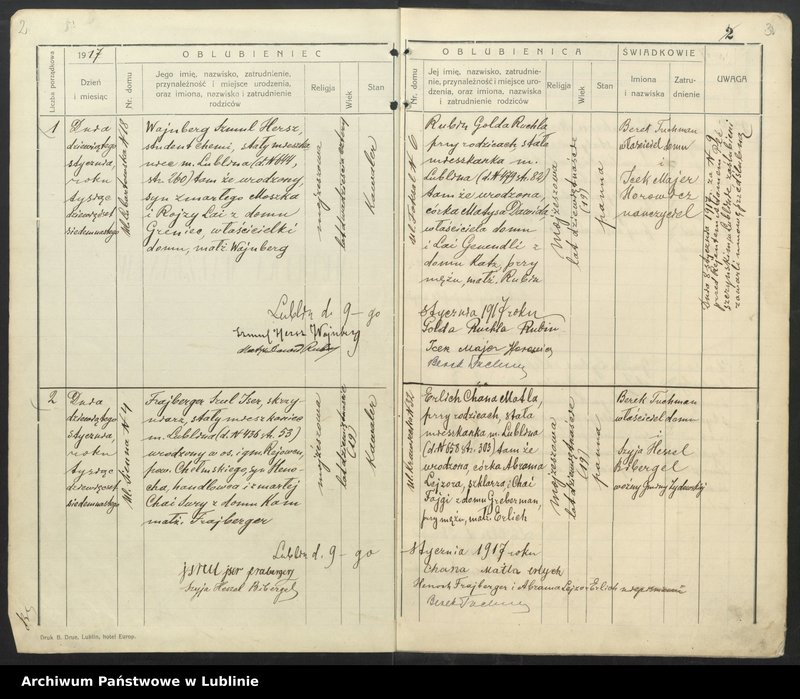 2
2
3
OBLUBIENIEC
OBLUBIENICA
ŚWIADKOWIE
Liczba porządkowa
1917
Dzień
i miesiąc
Nr. domu
Jego imię, nazwisko, zatrudnienie,
przynależność i miejsce urodzenia,
oraz imiona, nazwisko i zatrudnienie
rodziców
Religja
Wiek
Stan
Nr. domu
Jej imię, nazwisko, zatrudnie-
nie, przynależność i miejsce uro-
dzenia, oraz imiona, nazwiska
i zatrudnienie rodziców
Religja
Wiek
Stan
Imiona
i nazwiska
Zatru-
dnienie
UWAGA
1
Dnia
dziewiątego
stycznia,
roku
tysiąc
dziewięćset
siedemnastego
ul. Lubartowska N 18
Wajnberg Szmul Hersz,
student chemi, stały mieszka
niec m. Lublina (d. N 644,
str. 260) tamże urodzony,
syn zmarłego Moszka
i Rojzy Lai z domu
Grenic, właścicielki
domu, małż. Wajnberg
mojżeszowa
lat dwadzieścia cztery
kawaler
Rubin Golda Ruchla
przy rodzicach, stała
mieszkanka m.
Lublina (d. N 449 st. 82)
tamże urodzona,
córka Matysa Dawida
właściciela domu
i Lai Gewendli z
domu Katz, przy
mężu, małż. Rubin
mojżeszowa
lat dziewiętnaście
(19)
panna
Berek Tuchman
właściciel domu
i
Icek Majer
Horowicz
nauczyciel
Dnia 8 stycznia 1917 za N 9
przed Rejentem
w Lublinie, zaślubieni
zawarli umowę przedślubną
Lublin d. 9-go
stycznia 1917 roku
Szmul Hersz Wajnberg
Golda Ruchla Rubin
Icek Majer Horowicz
2
Dnia
dziewiątego
stycznia,
roku
tysiąc
dziewięćset
siedemnastego
ul. Szeroka N 4
Frajberger Srul Iser, skrzy-
niarz, stały mieszkaniec
m. Lublina (d. N 436 st. 53)
urodzony w os. i gm. Rejowiec,
pow. Chełmskiego, syn Heno-
cha, handlowca i zmarłej
Chai Sury z domu Kam
małż. Frajberger
mojżeszowa
lat dziewiętnaście
(19)
kawaler
Erlich Chana Matla,
przy rodzicach, stała
mieszkanka m. Lublina
(d. N 658 st. 303) tamże
urodzona, córka Abrama
Lejzora, szklarza i Chai
Fajgi z domu Greberman,
przy mężu, małż. Erlich
mojżeszowa
lat dziewiętnaście
(19)
panna
Berek Tuchman
właściciel domu
i
Szyja Hessel
Bibergel
woźny Gminy Żydowskiej
Lublin d. 9-go
stycznia 1917 roku
Szyja Hessel Bibergel
Chana Matla Erlych
Henoch Frajberger i Abrama Lejzor Erlich niepiśmienni
Druk B. Drue, Lublin, hotel Europ.
Archiwum Państwowe w Lublinie